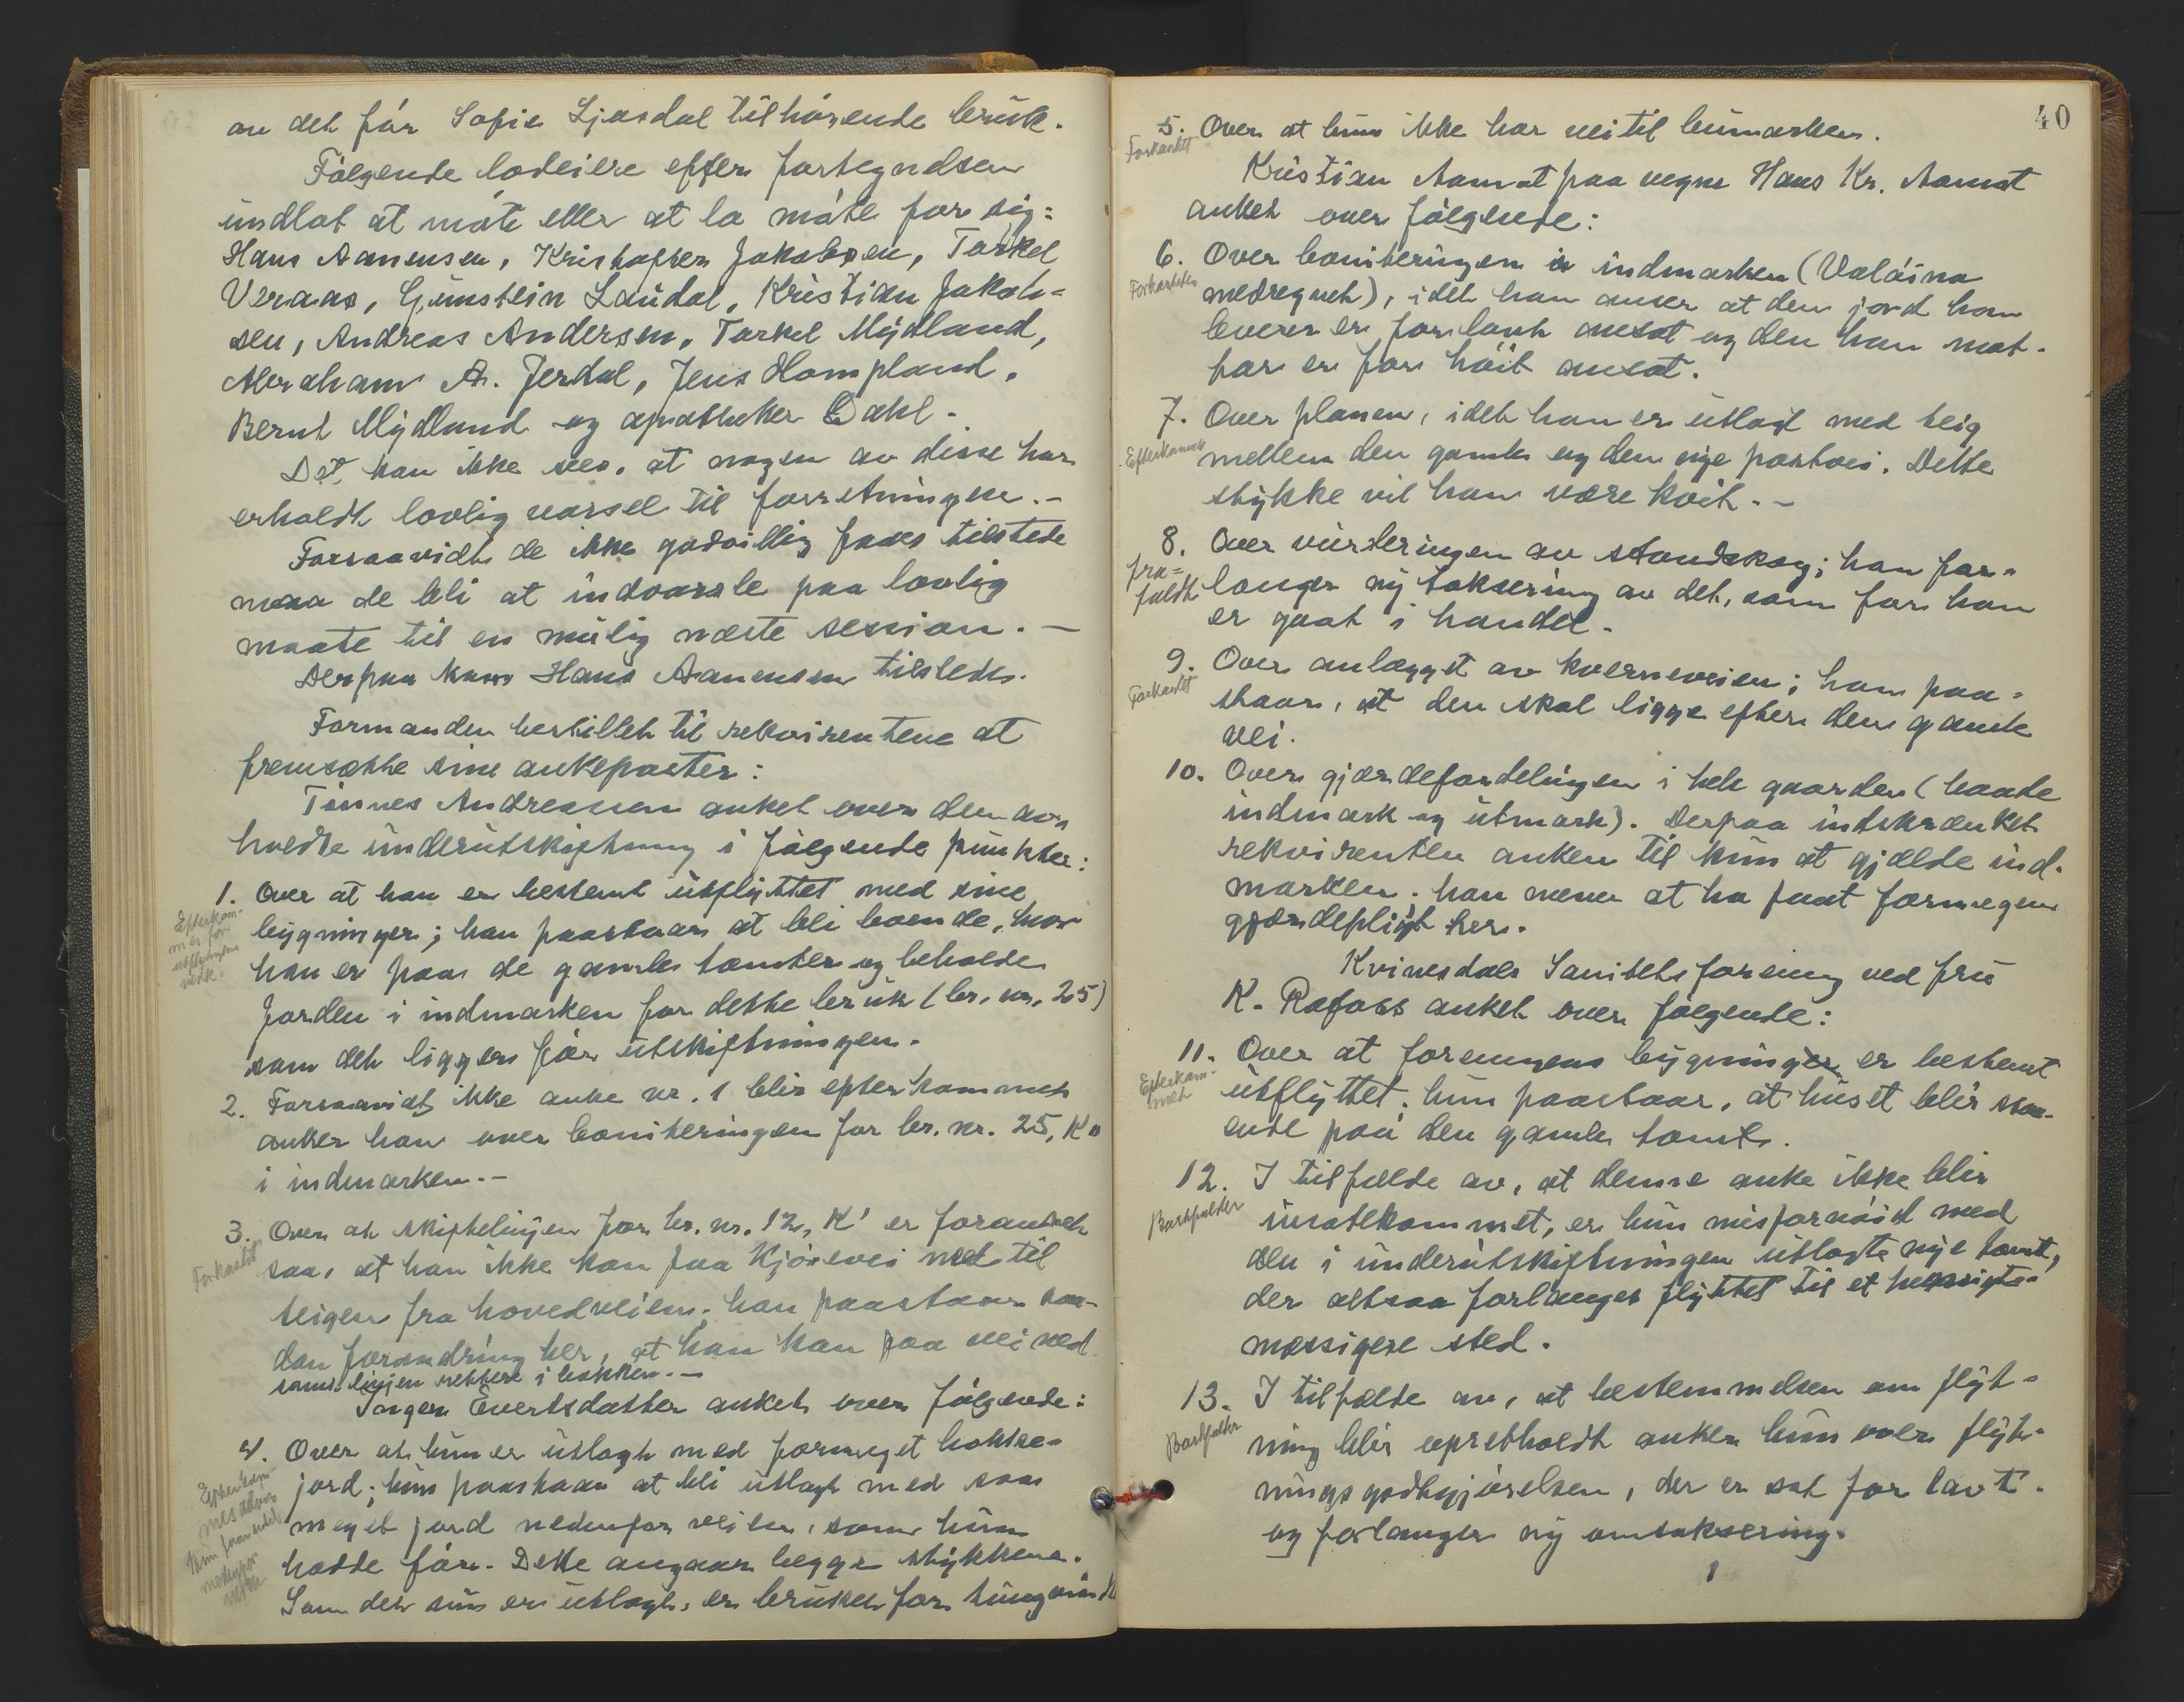 av det før Sofie Ljosdal tilhørende bruk.
Følgende lodeiere efter fortegnelsen
undlot at møte eller at la møte for sig:
Hans Aanensen, Kristoffer Jakobsen, Torkel
Veraas, Gunstein Laudal, Kristian Jakob-
sen, Andreas Andersen, Torkel Mydland,
Abraham A. Jerdal, Jens Hompland,
Bernt Mydland og apotheker Dahl.
Det kan ikke sees, at nogen av disse har
erholdt lovlig varsel til forretningen.-
Forsaavidt de ikke godvillig faaes tilstede
maa de bli at indvarsle paa lovlig
maate til en mulig næste session.-
Derpaa kom Hans Aanensen tilstede.
Formanden bestillet til rekvirentene at
fremsætte sine ankeposter:
Tønnes Andreassen anket over den av-
holdte underutskiftning i følgende punkter:
1. Over at han er bestemt utflyttet med sine
Efterkom-
mes for
utflytningens
vedk.
bygninger; han paastaar at bli boende, hvor
han er paa de gamle tomter og beholde
jorden i indmarken for dette bruk (br. nr. 25)
som det ligger før utskiftningen.
2. Forsaavidt ikke anke nr. 1 blir efterkommet
anker han over boniteringen for br. nr. 25,
i indmarken.-
3. Over at skiftelinjen for br. nr. 12, K' er forandret
Forkastet
saa, at han ikke kan faa kjørevei ned til
teigen fra hovedveien; han paastaar saa-
dan forandring her, at han kan faa vei ned
samt linjen rettere i bakken.-
Inger Evertsdatter anket over følgende:
4. Over at hun er utlagt med formeget bakke-
jord; hun paastaar at bli utlagt med saa
meget jord nedenfor veien, som hun
hadde før. Dette angaar begge stykkene.
Som det nu er utlagt, er bruket for tungvindt
40
5. Over at hun ikke har vei til bumarken.
Forkastet
Kristian Aamot paa vegne Hans Kr. Aamot
anket over følgende:
6. Over boniteringen i indmarken (Valøina
Forkastes
medregnet), idet han anser at den jord han
leverer er for lavt ansat og den han mot-
tar er for høit ansat.
7. Over planen, idet han er utlagt med teig
Efterkommet
mellem den gamle og den nye postvei. Dette
stykke vil han være kvit.-
8. Over vurderingen av standskog; han for-
fra-
faldt
langer ny taksering av det, som for ham
er gaat i handel.
9. Over anlægget av kverneveien; han paa-
Forkastet
staar, at den skal ligge efter den gamle
vei.
10. Over gjærdefordelingen i hele gaarden (baade
indmark og utmark). Derpaa indskrænket
rekvirenten anken til kun at gjælde ind-
marken; han mener at ha faat formegen
gjærdeplikt her.
Kvinesdals Sanitetsforening ved fru
K. Rafoss anket over følgende:
11. Over at foreningens bygninger er bestemt
Efterkom-
met
utflyttet; hun paastaar, at huset blir staa-
ende paa den gamle tomt.
12. I tilfælde av, at denne anke ikke blir
Bortfalder
imøtekommet, er hun misfornøid med
den i underutskiftningen utlagte nye tomt,
der altsaa forlanges flyttet til et hensigts-
mæssigere sted.
13. I tilfælde av, at bestemmelsen om flyt-
Bortfalder
ning blir opretholdt anker hun over flyt-
ningsgodtgjørelsen, der er sat for lavt.
og forlanger ny omtaksering.